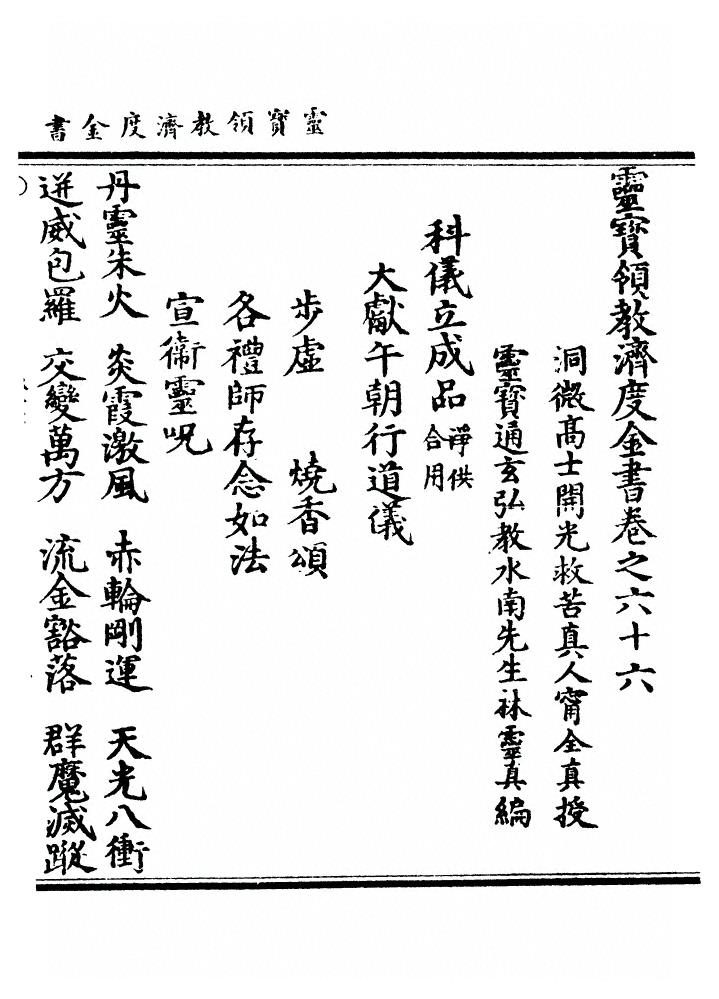 靈寶領教濟度金書
靈寶領教濟度金書卷之六十六
洞微高士開光救苦真人甯全真授
靈寶通玄弘教水南先生林靈真編
科儀立成品諍供合用
大獻午朝行道儀
步虛 燒香頌
各禮師存念如法
宣衞靈呪
丹靈朱火 炎霞激風 赤輪剛運 天光八衝
迸威包羅 交變萬方 流金豁落 群魔滅蹤